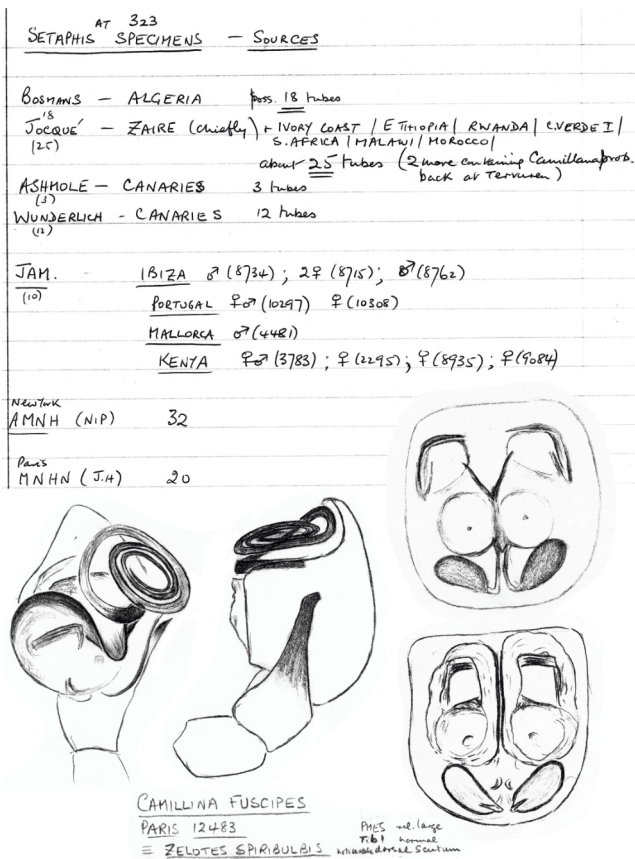 AT 323
SETAPHIS SPECIMENS — SOURCES
BOSMANS — ALGERIA poss. 18 tubes
'18
JOCQUÉ — ZAIRE (chiefly) + IVORY COAST / ETHIOPIA / RWANDA / C.VERDE I /
(25) S. AFRICA / MALAWI / MOROCCO /
about 25 tubes (2 more containing Camillana prob.
back at Tervuren)
ASHMOLE — CANARIES 3 tubes
(3)
WUNDERLICH - CANARIES 12 tubes
(12)
JAM. - IBIZA ♂ (8734) ; 2♀ (8715) ; ♂ (8762)
(10)
PORTUGAL ♀♂ (10297) ♀ (10308)
MALLORCA ♂ (4481)
KENYA ♀♂ (3783) ; ♀ (2295) ; ♀ (8935) ; ♀ (9084)
New York
AMNH (NIP) 32
Paris
MNHN (J.H) 20
CAMILLINA FUSCIPES
PARIS 12483
≡ ZELOTES SPIRIBULBIS
PMES rel. large
Tib I normal
dorsal scutum